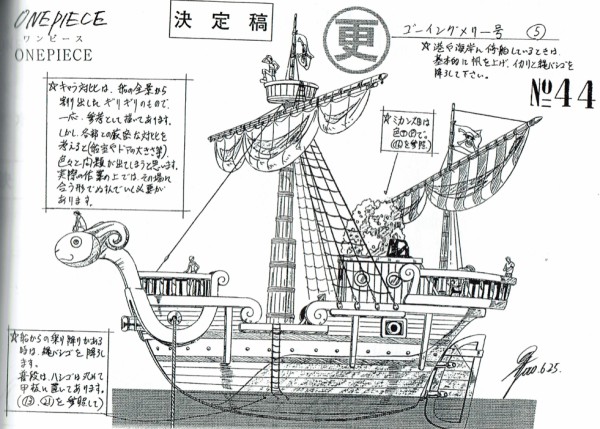 ONEPIECE
ワンピース
ONEPIECE
決定稿
更
ゴーイングメリー号 ⑤
☆港や海岸に停船しているときは、
基本的に帆を上げ、イカリと縄バシゴを
降ろして下さい。
No 44
☆キャラ対比は、船の全景から
割り出したギリギリのもので、
一応、参考として描いてあります。
しかし、各部との厳密な対比を
考えると(船室やドアの大きさ等)
色々と問題が出てしまうと思います。
実際の作業の上では、その場に
合う形でやっていく必要が
あります。
☆ミカン畑は
を参照)
☆船からの乗り降りがある
時は、縄バシゴを降ろし
ます。
普段は、ハシゴは丸めて
甲板に置いてあります。
(⑬、㉑を参照して)